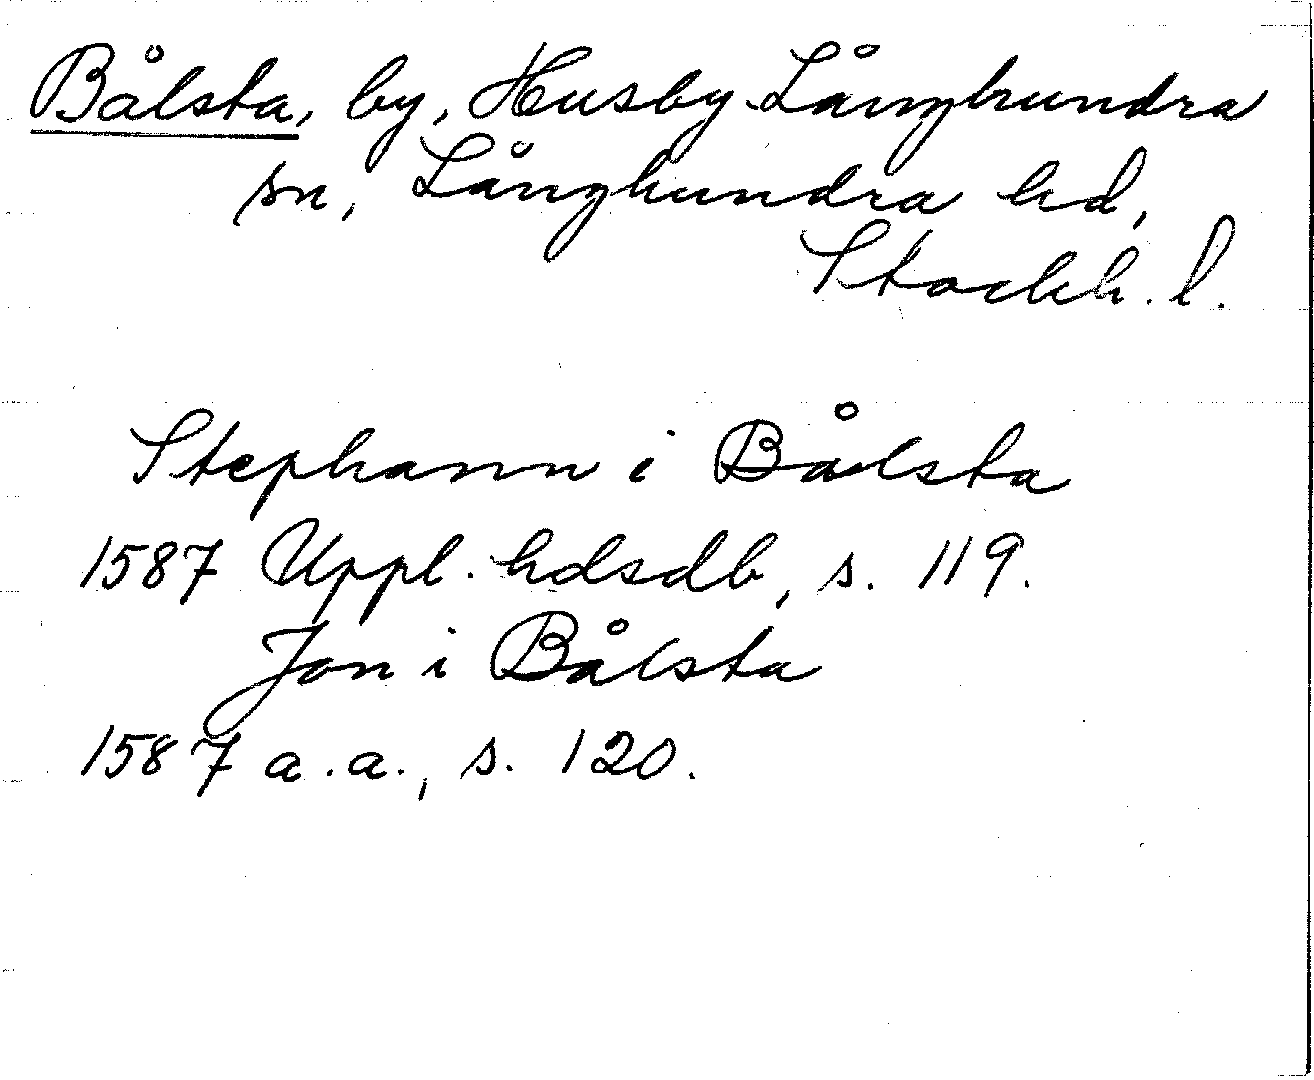 Bålsta, by, Husby-Långhundra
sn, Långhundra hd,
Stockh. l.
Stephann i Bålsta
1587 Uppl. hdsdb, s. 119.
Jon i Bålsta
1587 a.a., s. 120.